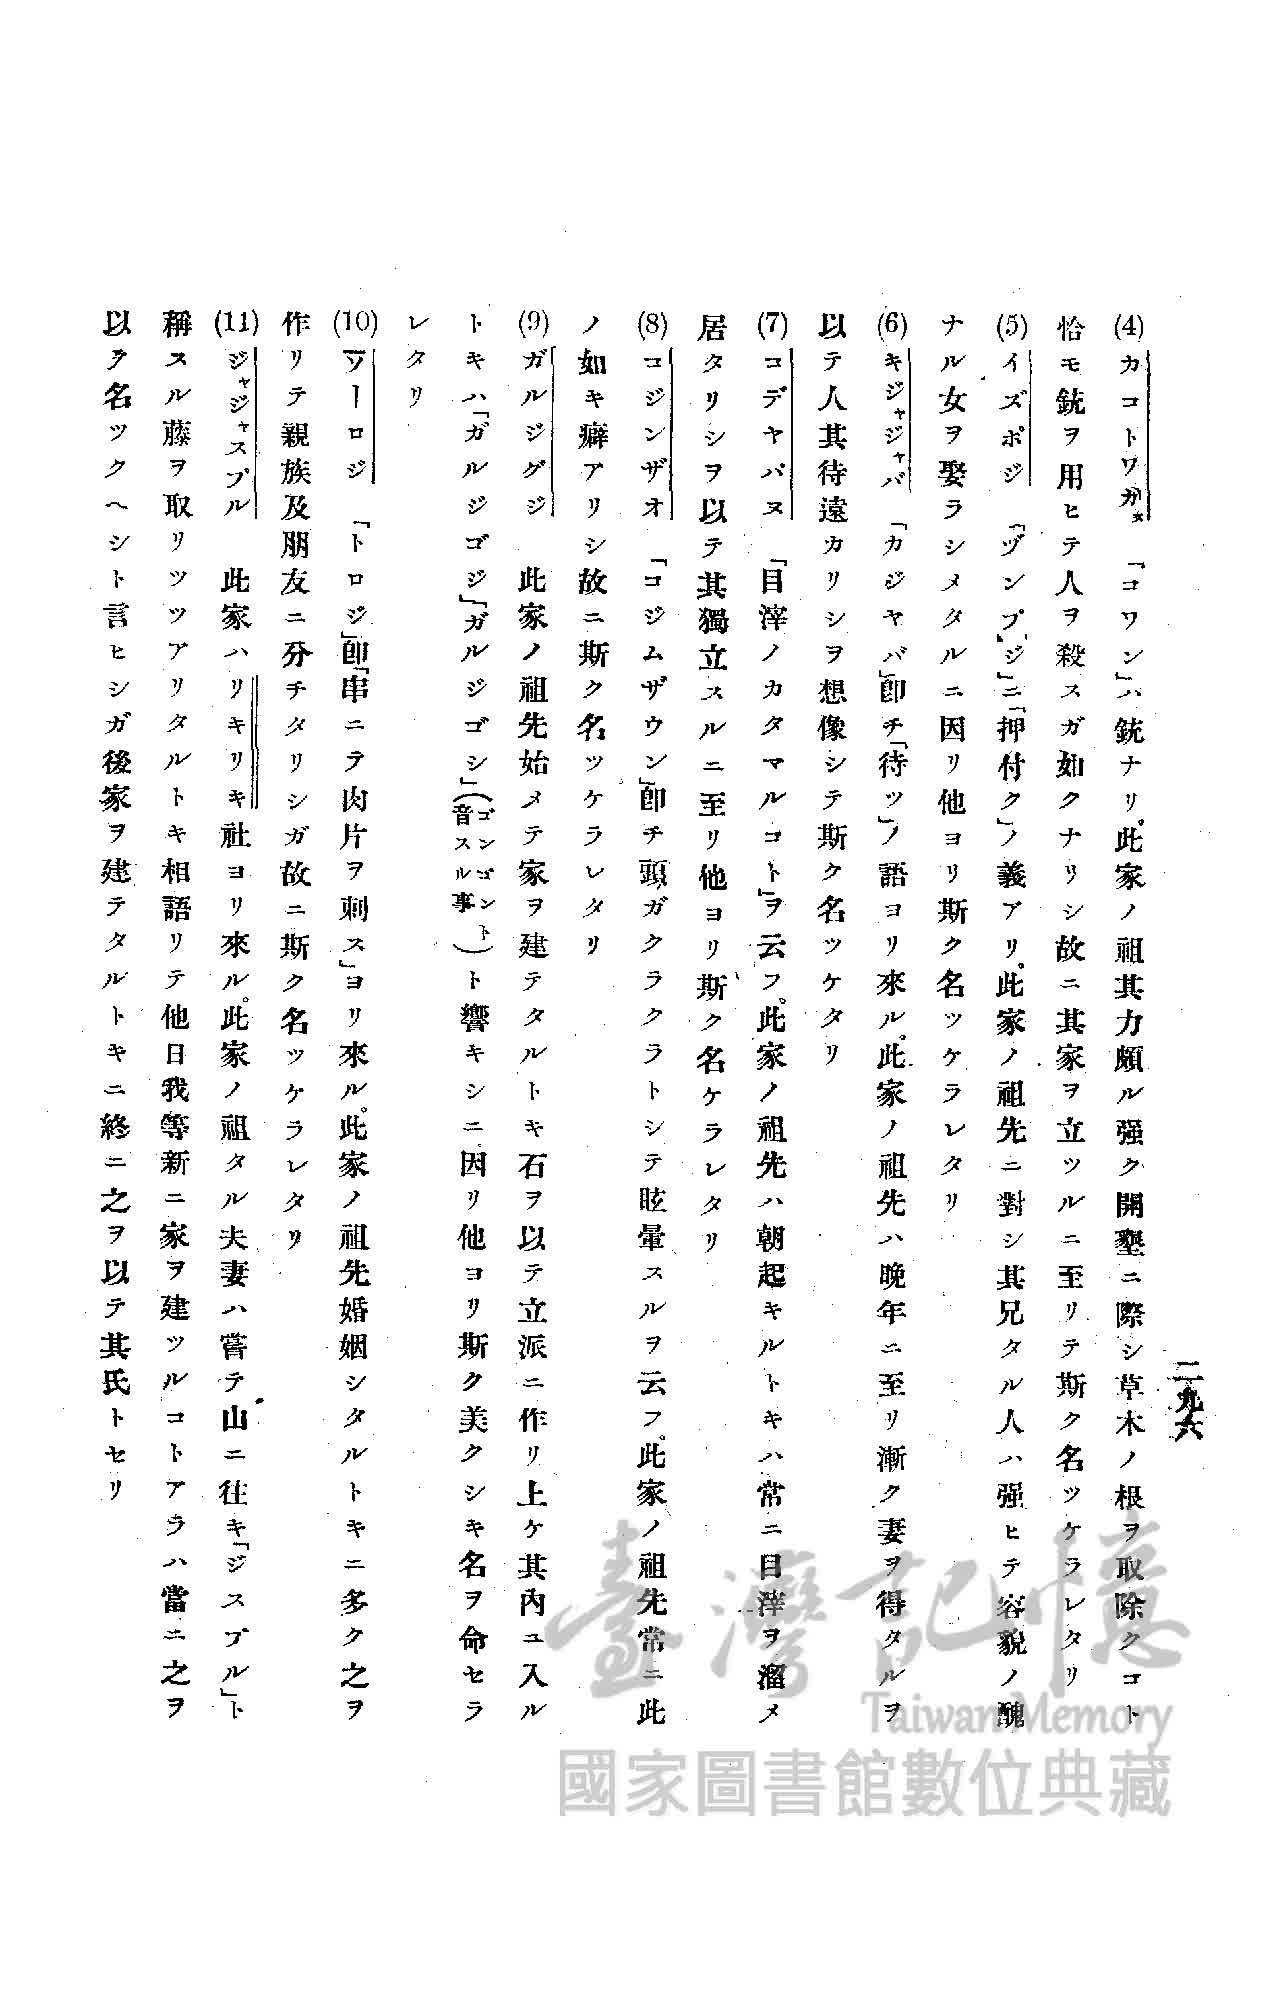 二九六
(4) カコトワガヌ 「コワン」ハ銃ナリ。此家ノ祖其力頗ル强ク開墾ニ際シ草木ノ根ヲ取除クコト
恰モ銃ヲ用ヒテ人ヲ殺スガ如クナリシ故ニ其家ヲ立ツルニ至リテ斯ク名ツケラレタリ
(5) イズポジ 「ヅンプ」「ジ」ニ「押付ク」ノ義アリ。此家ノ祖先ニ對シ其兄タル人ハ强ヒテ容貌ノ醜
ナル女ヲ娶ラシメタルニ因リ他ヨリ斯ク名ツケラレタリ
(6) キジャジャバ 「カジヤバ」卽チ「待ツ」ノ語ヨリ來ル。此家ノ祖先ハ晚年ニ至リ漸ク妻ヲ得タルヲ
以テ人其待遠カリシヲ想像シテ斯ク名ツケタリ
(7) コデヤパヌ 「目滓ノカタマルコト」ヲ云フ。此家ノ祖先ハ朝起キルトキハ常ニ目滓ヲ溜メ
居タリシヲ以テ其獨立スルニ至リ他ヨリ斯ク名ケラレタリ
(8) コジンザオ 「コジムザウン」卽チ頭ガクラクラトシテ眩暈スルヲ云フ。此家ノ祖先常ニ此
ノ如キ癖アリシ故ニ斯ク名ツケラレタリ
(9) ガルジグジ 此家ノ祖先始メテ家ヲ建テタルトキ石ヲ以テ立派ニ作リ上ケ其內ニ入ル
トキハ「ガルジゴジ」「ガルジゴシ」(ゴンゴント音スル事)ト響キシニ因リ他ヨリ斯ク美クシキ名ヲ命セラ
レタリ
(10) ツーロジ 「トロジ」卽「串ニテ肉片ヲ刺ス」ヨリ來ル。此家ノ祖先婚姻シタルトキニ多ク之ヲ
作リテ親族及朋友ニ分チタリシガ故ニ斯ク名ツケラレタリ
(11) ジャジャスプル 此家ハリキリキ社ヨリ來ル。此家ノ祖タル夫妻ハ嘗テ山ニ往キ「ジスプル」ト
稱スル藤ヲ取リツツアリタルトキ相語リテ他日我等新ニ家ヲ建ツルコトアラハ當ニ之ヲ
以テ名ツクヘシト言ヒシガ後家ヲ建テタルトキニ終ニ之ヲ以テ其氏トセリ
臺灣記憶
Taiwan Memory
國家圖書館數位典藏